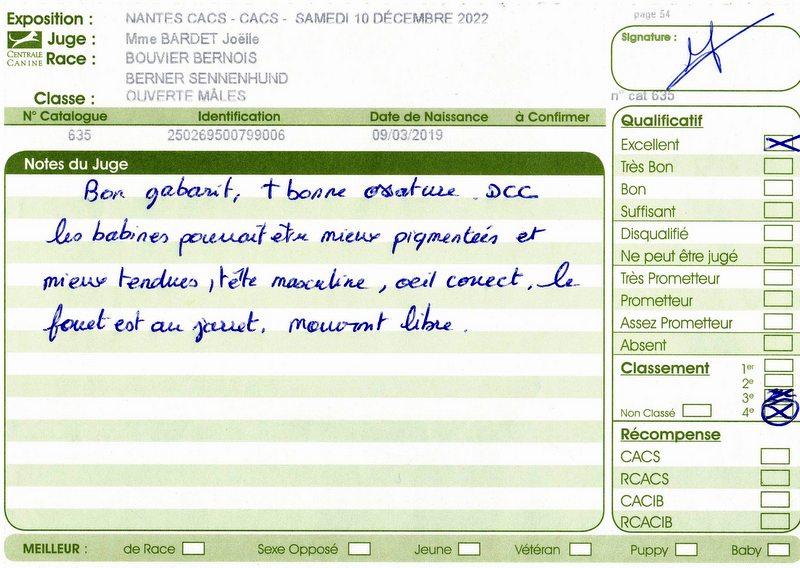 Exposition : NANTES CACS - CACS - SAMEDI 10 DÉCEMBRE 2022
page 54
CENTRALE CANINE
Juge : Mme BARDET Joëlle
Signature :
Race : BOUVIER BERNOIS
BERNER SENNENHUND
Classe : OUVERTE MÂLES
n° cat 635
N° Catalogue Identification Date de Naissance à Confirmer
635 250269500799006 09/03/2019
Notes du Juge
Bon gabarit, + bonne ossature. DCC
les babines pourrait être mieux pigmenteés et
mieux tendues, tête masculine, oeil correct, le
fouet est au jarret. mouvant libre.
Qualificatif
Excellent
Très Bon
Bon
Suffisant
Disqualifié
Ne peut être jugé
Très Prometteur
Prometteur
Assez Prometteur
Absent
Classement 1er
2e
3e
Non Classé 4e
Récompense
CACS
RCACS
CACIB
RCACIB
MEILLEUR : de Race Sexe Opposé Jeune Vétéran Puppy Baby